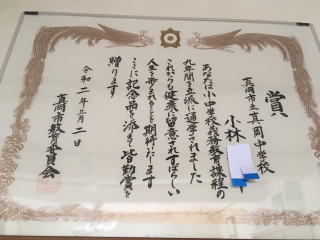 賞
真岡市立真岡中学校
小林
あなたは小中学校義務教育課程の
九年間を立派に通学されました
これからも健康に留意されすばらしい
人生を歩まれることを期待いたします
ここに記念品を添えて皆勤賞を
贈ります
令和二年三月二日
真岡市教育委員会